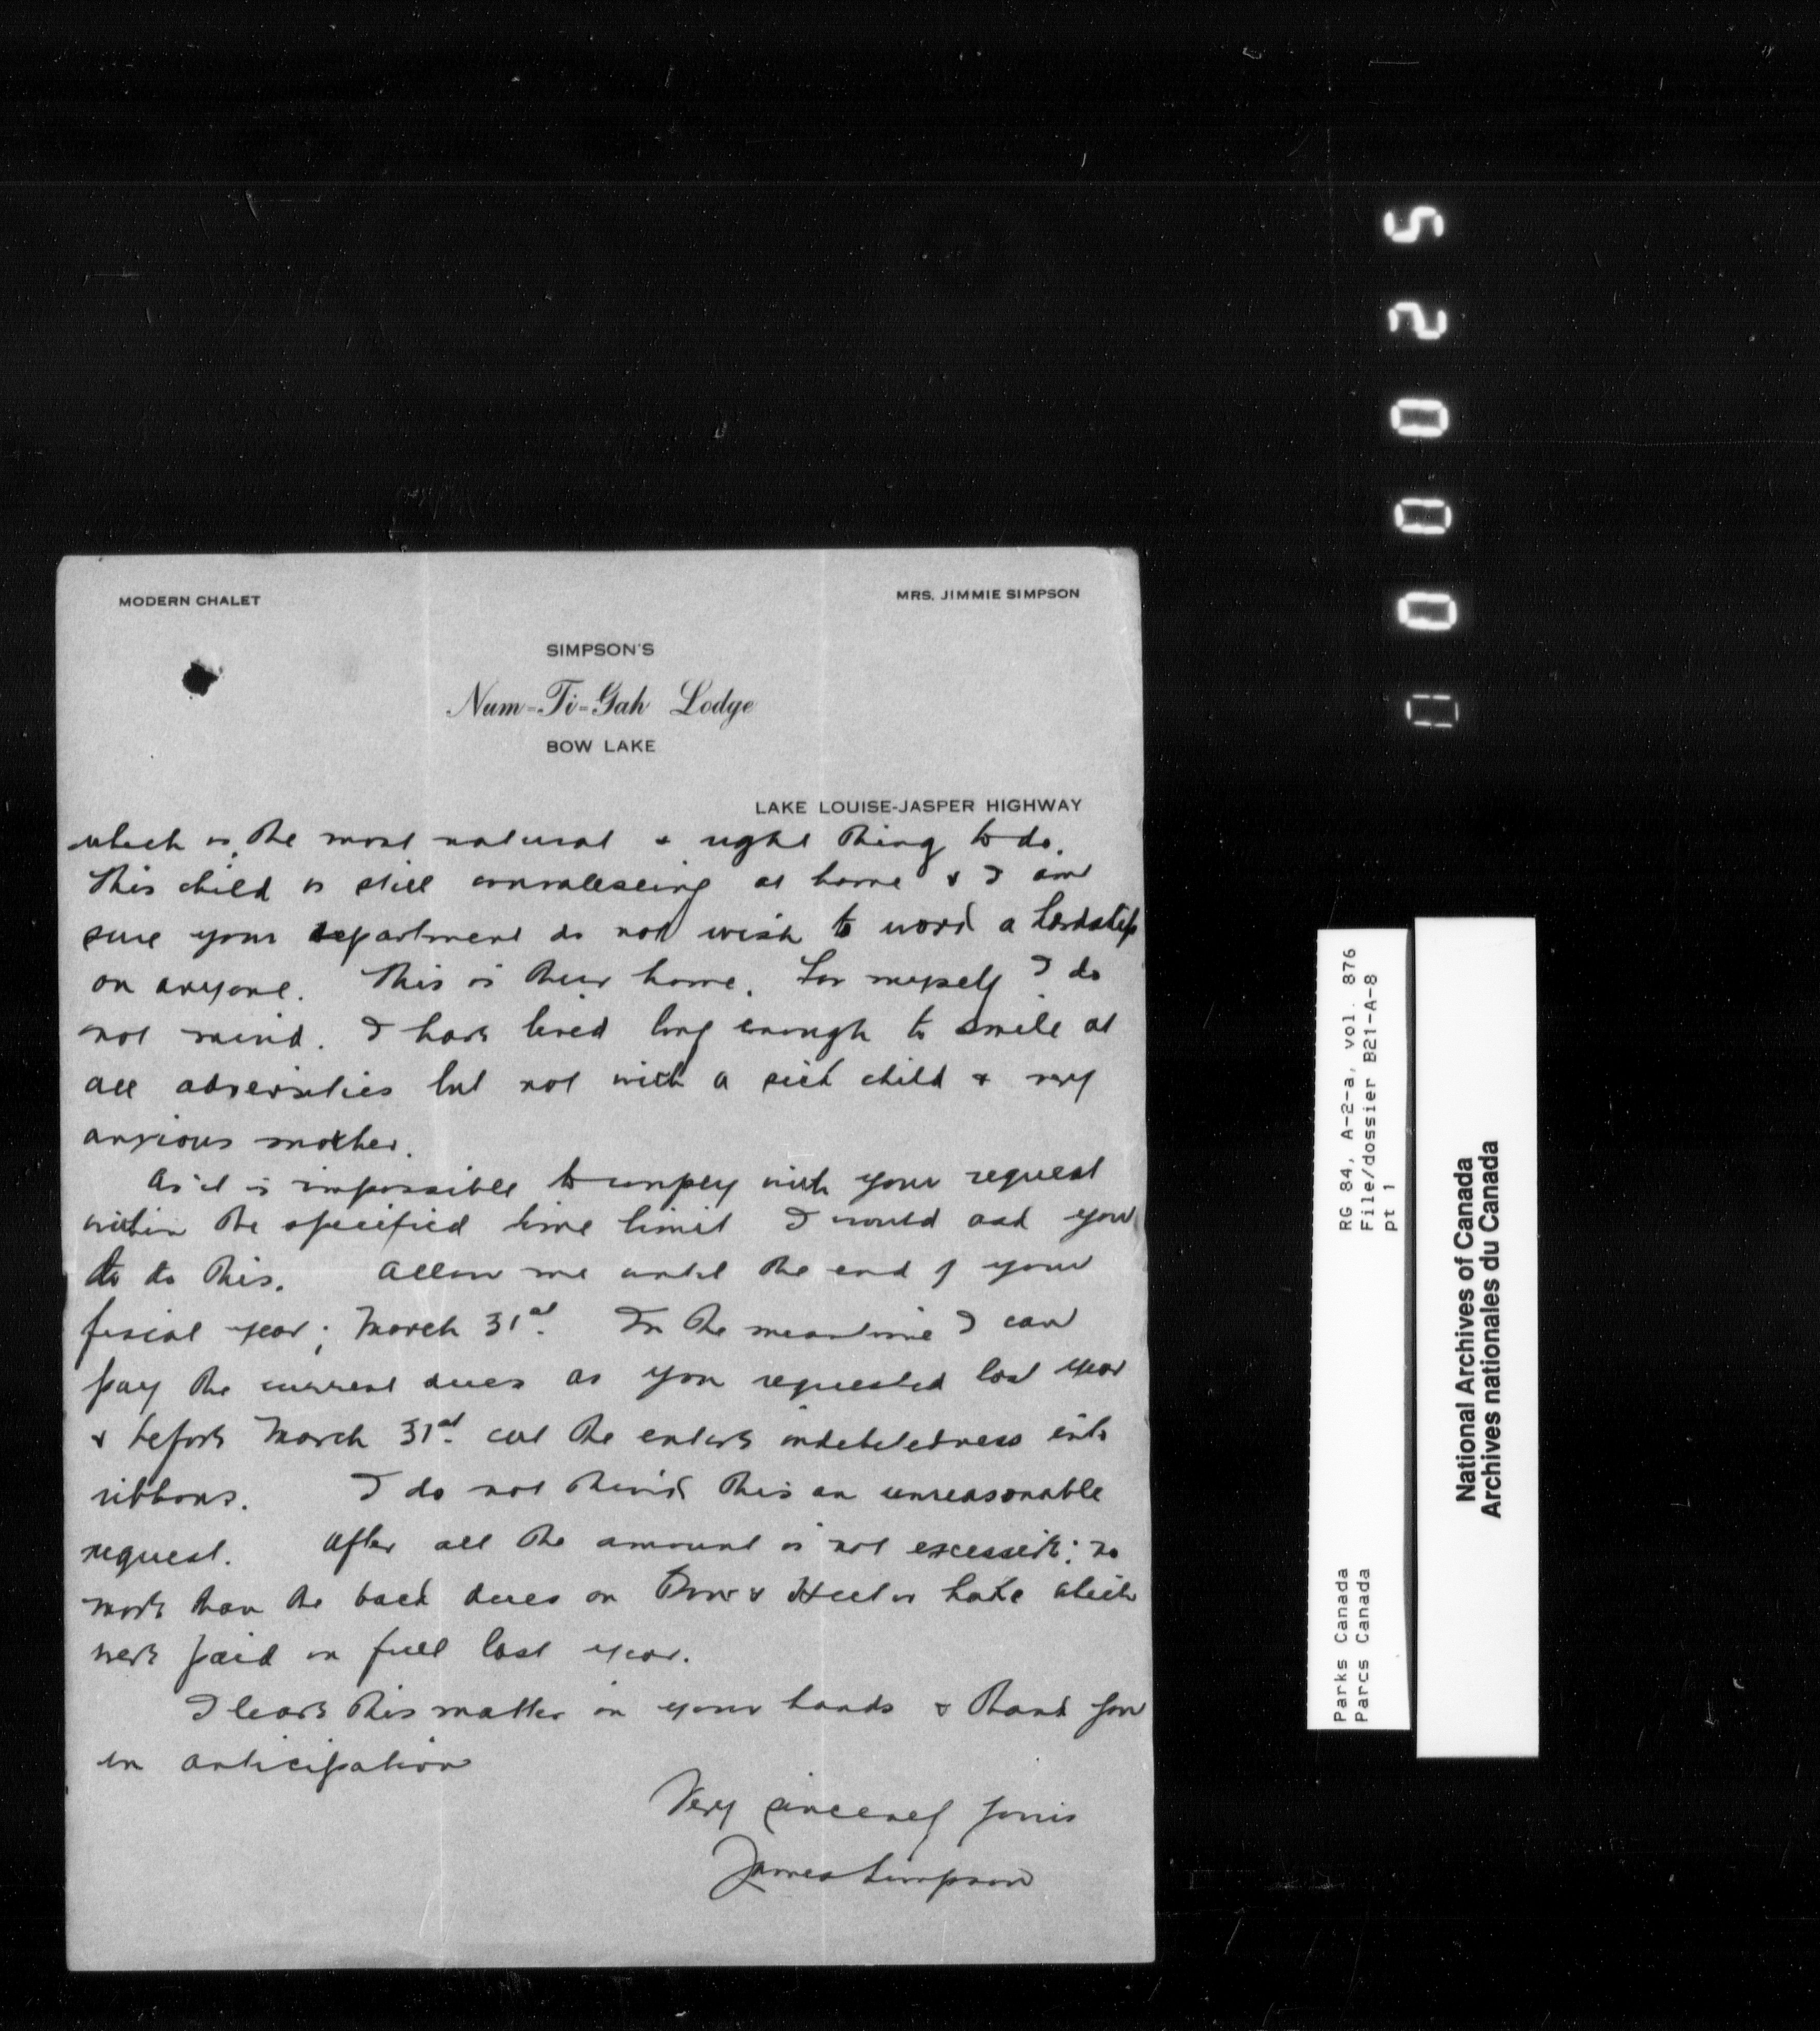 MODERN CHALET
MRS. JIMMIE SIMPSON
SIMPSON'S
Num-Ti-Gah Lodge
BOW LAKE
LAKE LOUISE-JASPER HIGHWAY
which is the most natural & right thing to do.
This child is still convalescing at home & I am
sure your department do not wish to work a hardship
on anyone. This is their home. For myself I do
not mind. I have lived long enough to smile at
all adversities but not with a sick child & very
anxious mother.
As it is impossible to comply with your request
within the specified time limit I would ask you
to do this. Allow me until the end of your
fiscal year; March 31st. In the meantime I can
pay the current dues as you requested last year
& before March 31st. cut the entire indebtedness into
ribbons. I do not think this an unreasonable
request. After all the amount is not excessive; no
more than the back dues on Bow & Hector Lake which
were paid in full last year.
I leave this matter in your hands & thank you
in anticipation
Very sincerely yours
James Simpson
000025
RG 84, A-2-a, vol. 876
File/dossier B21-A-8
pt 1
Parks Canada
Parcs Canada
National Archives of Canada
Archives nationales du Canada